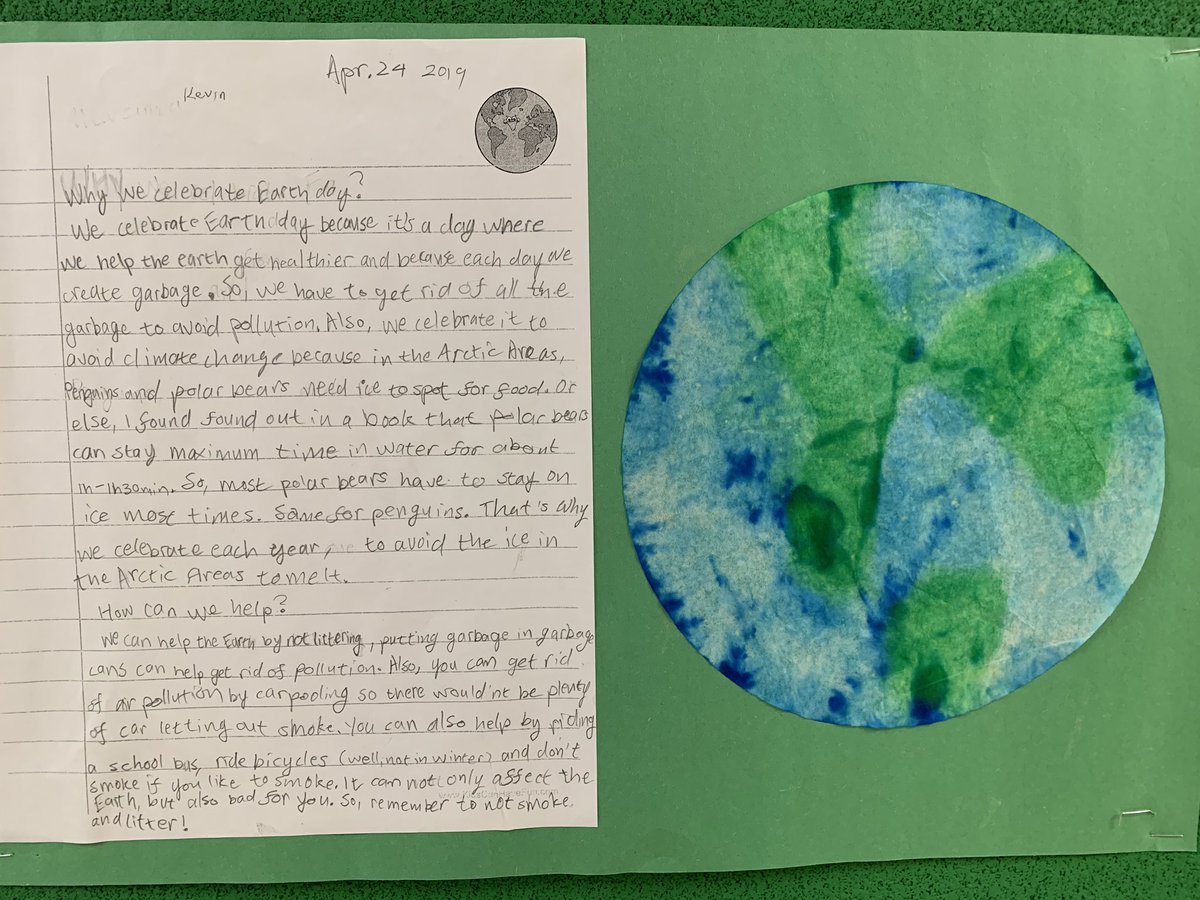 Apr. 24 2019
Kevin
Why we celebrate Earth day?
We celebrate Earthday because it's a day where
we help the earth get healthier and because each day we
create garbage. So, we have to get rid of all the
garbage to avoid pollution. Also, we celebrate it to
avoid climate change because in the Arctic Areas,
Penguins and polar bears need ice to spot for food. Or
else, I found found out in a book that polar bears
can stay maximum time in water for about
1h-1h30min. So, most polar bears have to stay on
ice most times. Same for penguins. That's why
we celebrate each year, to avoid the ice in
the Arctic Areas to melt.
How can we help?
We can help the Earth by not littering, putting garbage in garbage
cans can help get rid of pollution. Also, you can get rid
of air pollution by carpooling so there would'nt be plenty
of car letting out smoke. You can also help by riding
a school bus, ride bicycles (well, not in winter) and don't
smoke if you like to smoke. It can not only affect the
Earth, but also bad for you. So, remember to not smoke
and litter!